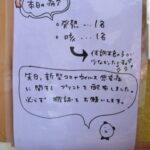 本日の病気
・発熱…1名
・咳…1名
体調は
先日、新型コロナウイルス感染症
に関するプリントを配布しました。
必ずご確認をお願いします。